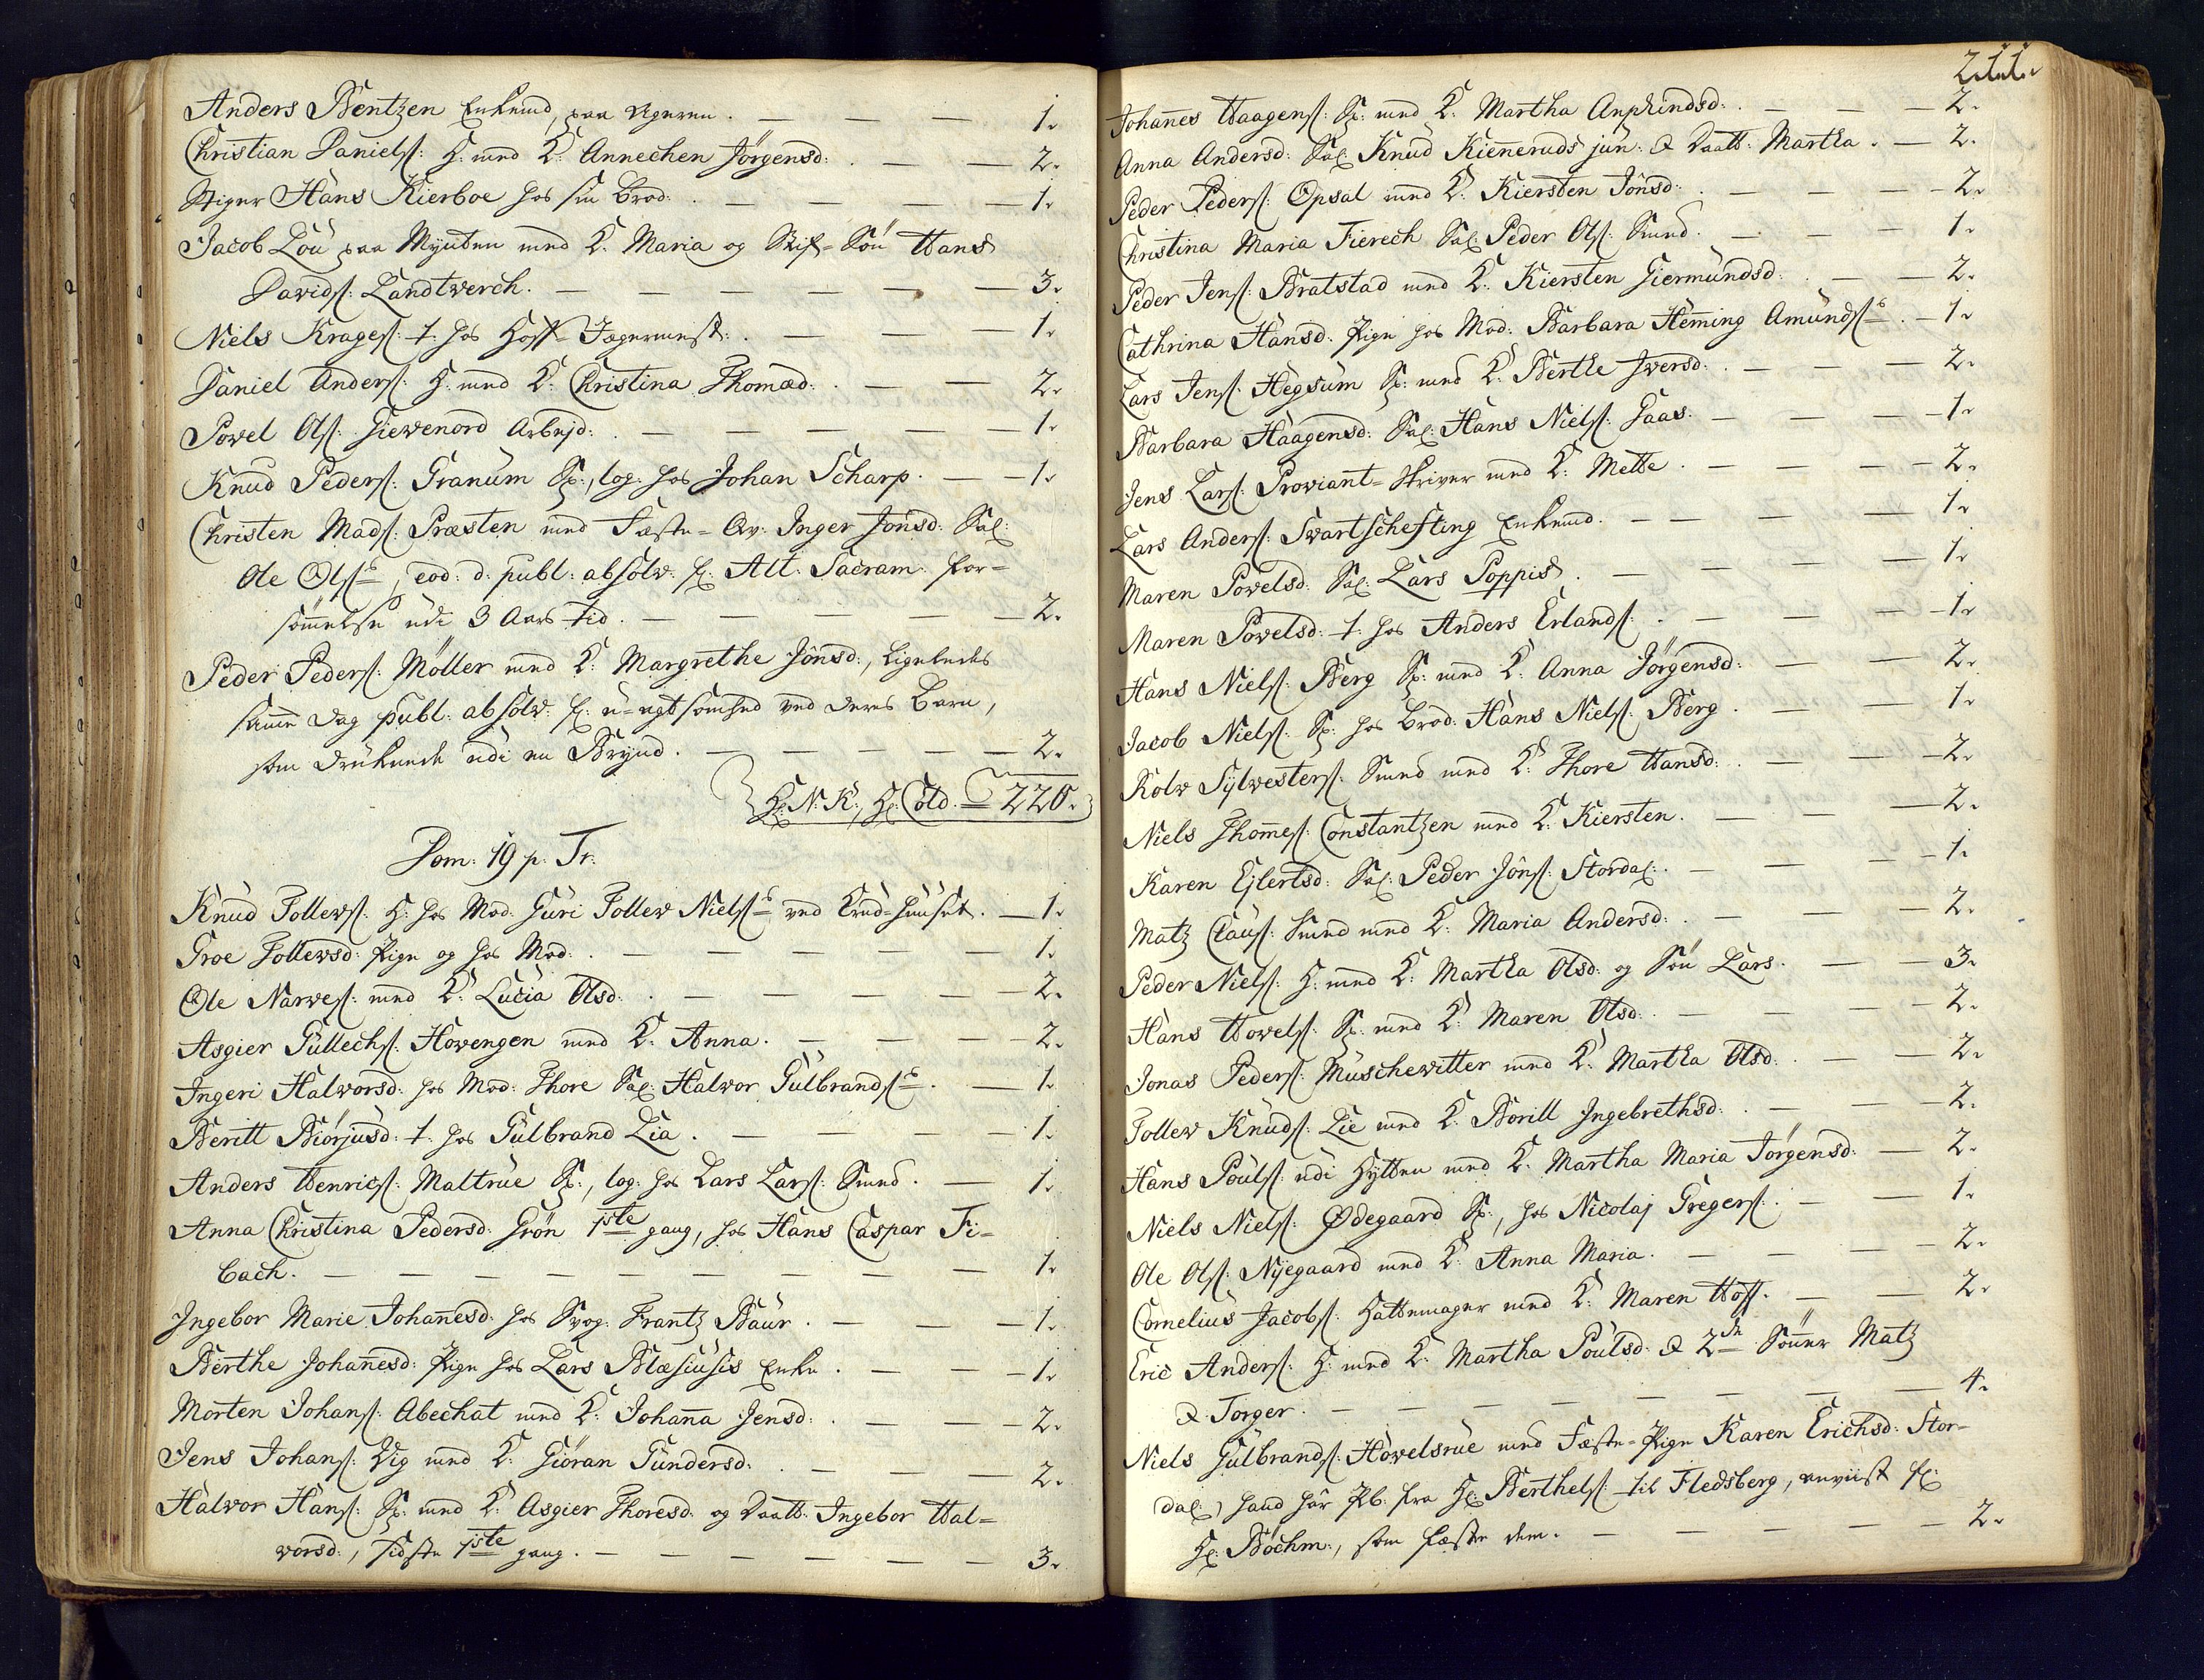 Anders Bentzen Enkemd, paa Ageren. — — — 1.
Christian Daniels: H: med K: Annechen Jörgensd: . — — 2.
Stiger Hans Kierboe hos sin Brod: . — — — — 1.
Jacob Lou paa Mynten med K: Maria og Stif-Sön Hans
Davids: Landtwerch. — — — — — — 3.
Niels Krages: t: hos Hoff-Jægermest: . — — — 1.
Daniel Anders: H: med K: Christina Thomæd: . — — 2.
Powel Ols: Giewenord Arbejd: . — — — — — 1.
Knud Peders: Granum Sp:, log: hos Johan Scharp. — — 1.
Christen Mads: Præsten med Fæste-Qv: Inger Jonsd: Sal:
Ole Ols:, eod: d: publ: absolv: f: Alt: Sacram: for-
sömmelse udi 3 Aars tid. — — — — — 2.
Peder Peders: Möller med K: Margrethe Jönsd:, ligeledes
samme Dag publ: absolv: f: u-agtsomhed ved deres Barn,
som druknede udi en Brynd. — — — — — 2.
H: N: K:, H: Cold. = 220.
Dom: 19 p: Tr:
Knud Tollews: H: hos Mod: Guri Tollew Niels: ved Krud-huuset. — 1.
Groe Tollewsd: Pige og hos Mod: . — — — — — 1.
Ole Narwes: med K: Lucia Olsd: . — — — — — 2.
Asgier Gullechs: Howengen med K: Anna. — — — — 2.
Ingeri Halworsd: hos Mod: Thore Sal: Halwor Gulbrands: . — 1.
Beritt Biörjusd: t: hos Gulbrand Lia. — — — — 1.
Anders Henrics: Maltrue Sp:, log: hos Lars Lars: Smed. — 1.
Anna Christina Pedersd: Grön 1ste gang, hos Hans Caspar Fi-
bach. — — — — — — — — — 1.
Ingebor Marie Johannesd: hos Svog: Frantz Baur. — — — 1.
Berthe Johannesd: Pige hos Lars Blæsiusis Enke. — — — 1.
Morten Johans: Abechat med K: Johanna Jensd: . — — — 2.
Jens Johans: Vig med K: Giöran Gundersd: . — — — 2.
Halvor Hans: Sp: med K: Asgier Thoresd: og Daatt: Ingebor Hal-
worsd:, sidste 1ste gang. — — — — — — 3.
211.
Johannes Haagens: Sp: med K: Martha Anphindsd: . — — — 2.
Anna Andersd: Sal: Knud Kieneruds jun: & Daatt: Martha. — 2.
Peder Peders: Opsal med K: Kiersten Jönsd: . — — — — 2.
Christina Maria Fierech Sal: Peder Ols: Smed. — — — 1.
Peder Jens: Bratstad med K: Kiersten Giermundsd: . — — 2.
Cathrina Hansd: Pige hos Mod: Barbara Hemming Amunds: . — 1.
Lars Jens: Hegsum Sp: med K: Berthe Iwersd: . — — — 2.
Barbara Haagensd: Sal: Hans Niels: Gaas. — — — — 1.
Jens Lars: Proviant-Skriver med K: Mette. — — — — 2.
Lars Anders: Swartschefting Enkemd. — — — — 1.
Maren Powelsd: Sal: Lars Poppis. — — — — — 1.
Maren Powelsd: t: hos Anders Erlands: . — — — — 1.
Hans Niels: Berg Sp: med K: Anna Jörgensd: . — — 2.
Jacob Niels: Sp: hos Brod: Hans Niels: Berg. — — — 1.
Rolw Sylwesters: Smed med K: Thore Hansd: . — — — 2.
Niels Thommes: Constantzen med K: Kiersten. — — — 2.
Karen Ejlertsd: Sal: Peder Jöns: Stordal: . — — — — 1.
Matz Claus: Smed med K: Maria Andersd: . — — — 2.
Peder Niels: H: med K: Martha Olsd: og Sön Lars. — — 3.
Hans Howels: Sp: med K: Maren Olsd: . — — — — 2.
Jonas Peders: Muschewitter med K: Martha Olsd: . — — 2.
Tollew Knuds: Lie med K: Borill Ingebrethsd: . — — — 2.
Hans Pouls: udi Hytten med K: Martha Maria Jörgensd: — 2.
Niels Niels: Ødegaard Sp:, hos Nicolaj Gregers: . — — 1.
Ole Ols: Nÿegaard med K: Anna Maria. — — — — 2.
Cornelius Jacobs: Hattemager med K: Maren Hoff. — — 2.
Eric Anders: H: med K: Martha Poulsd: & 2de Sönner Matz
& Torger. — — — — — — — — 4.
Niels Gulbrands: Howelsrue med Fæste-Pige Karen Erichsd: Stor-
dal:, hand har Pb: fra H: Berthels: til Fledsberg, anviist f:
H: Böchm:, som fæste dem. — — — — — 2.